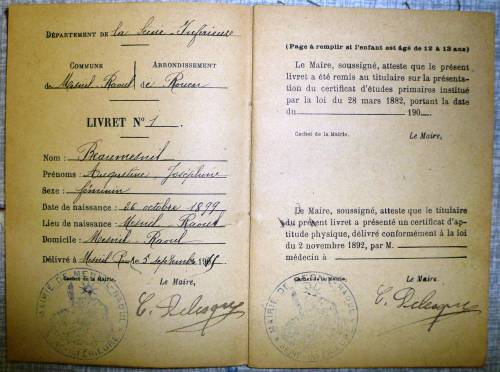 DÉPARTEMENT DE la Seine Inférieure
COMMUNE
ARRONDISSEMENT
de Mesnil-Raoul
de Rouen
LIVRET N° 1
Nom : Beaumesnil
Prénoms : Augustine Joséphine
Sexe : féminin
Date de naissance : 26 octobre 1899
Lieu de naissance : Mesnil Raoul
Domicile : Mesnil Raoul
Délivré à Mesnil R. le 5 septembre
Cachet de la Mairie.
Le Maire,
MAIRIE DE MESNIL-RAOUL
SEINE INFÉRIEURE
(Page à remplir si l'enfant est âgé de 12 à 13 ans)
Le Maire, soussigné, atteste que le présent
livret a été remis au titulaire sur la présenta-
tion du certificat d'études primaires institué
par la loi du 28 mars 1882, portant la date
du 190
Cachet de la Mairie.
Le Maire,
Le Maire, soussigné, atteste que le titulaire
du présent livret a présenté un certificat d'ap-
titude physique, délivré conformément à la loi
du 2 novembre 1892, par M.
médecin à
Cachet de la Mairie.
Le Maire.
MAIRIE DE MESNIL-RAOUL
SEINE INFÉRIEURE